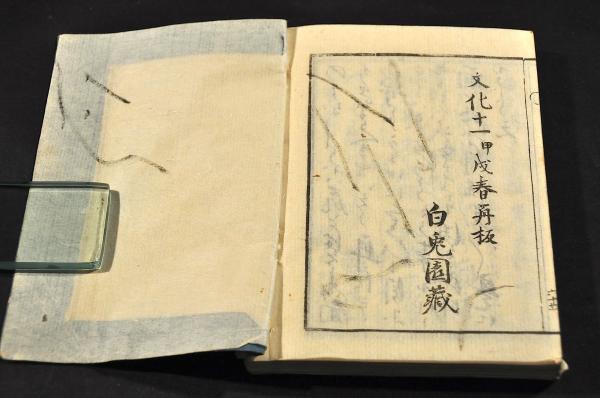 文化十一甲戌春再板
白兎園藏